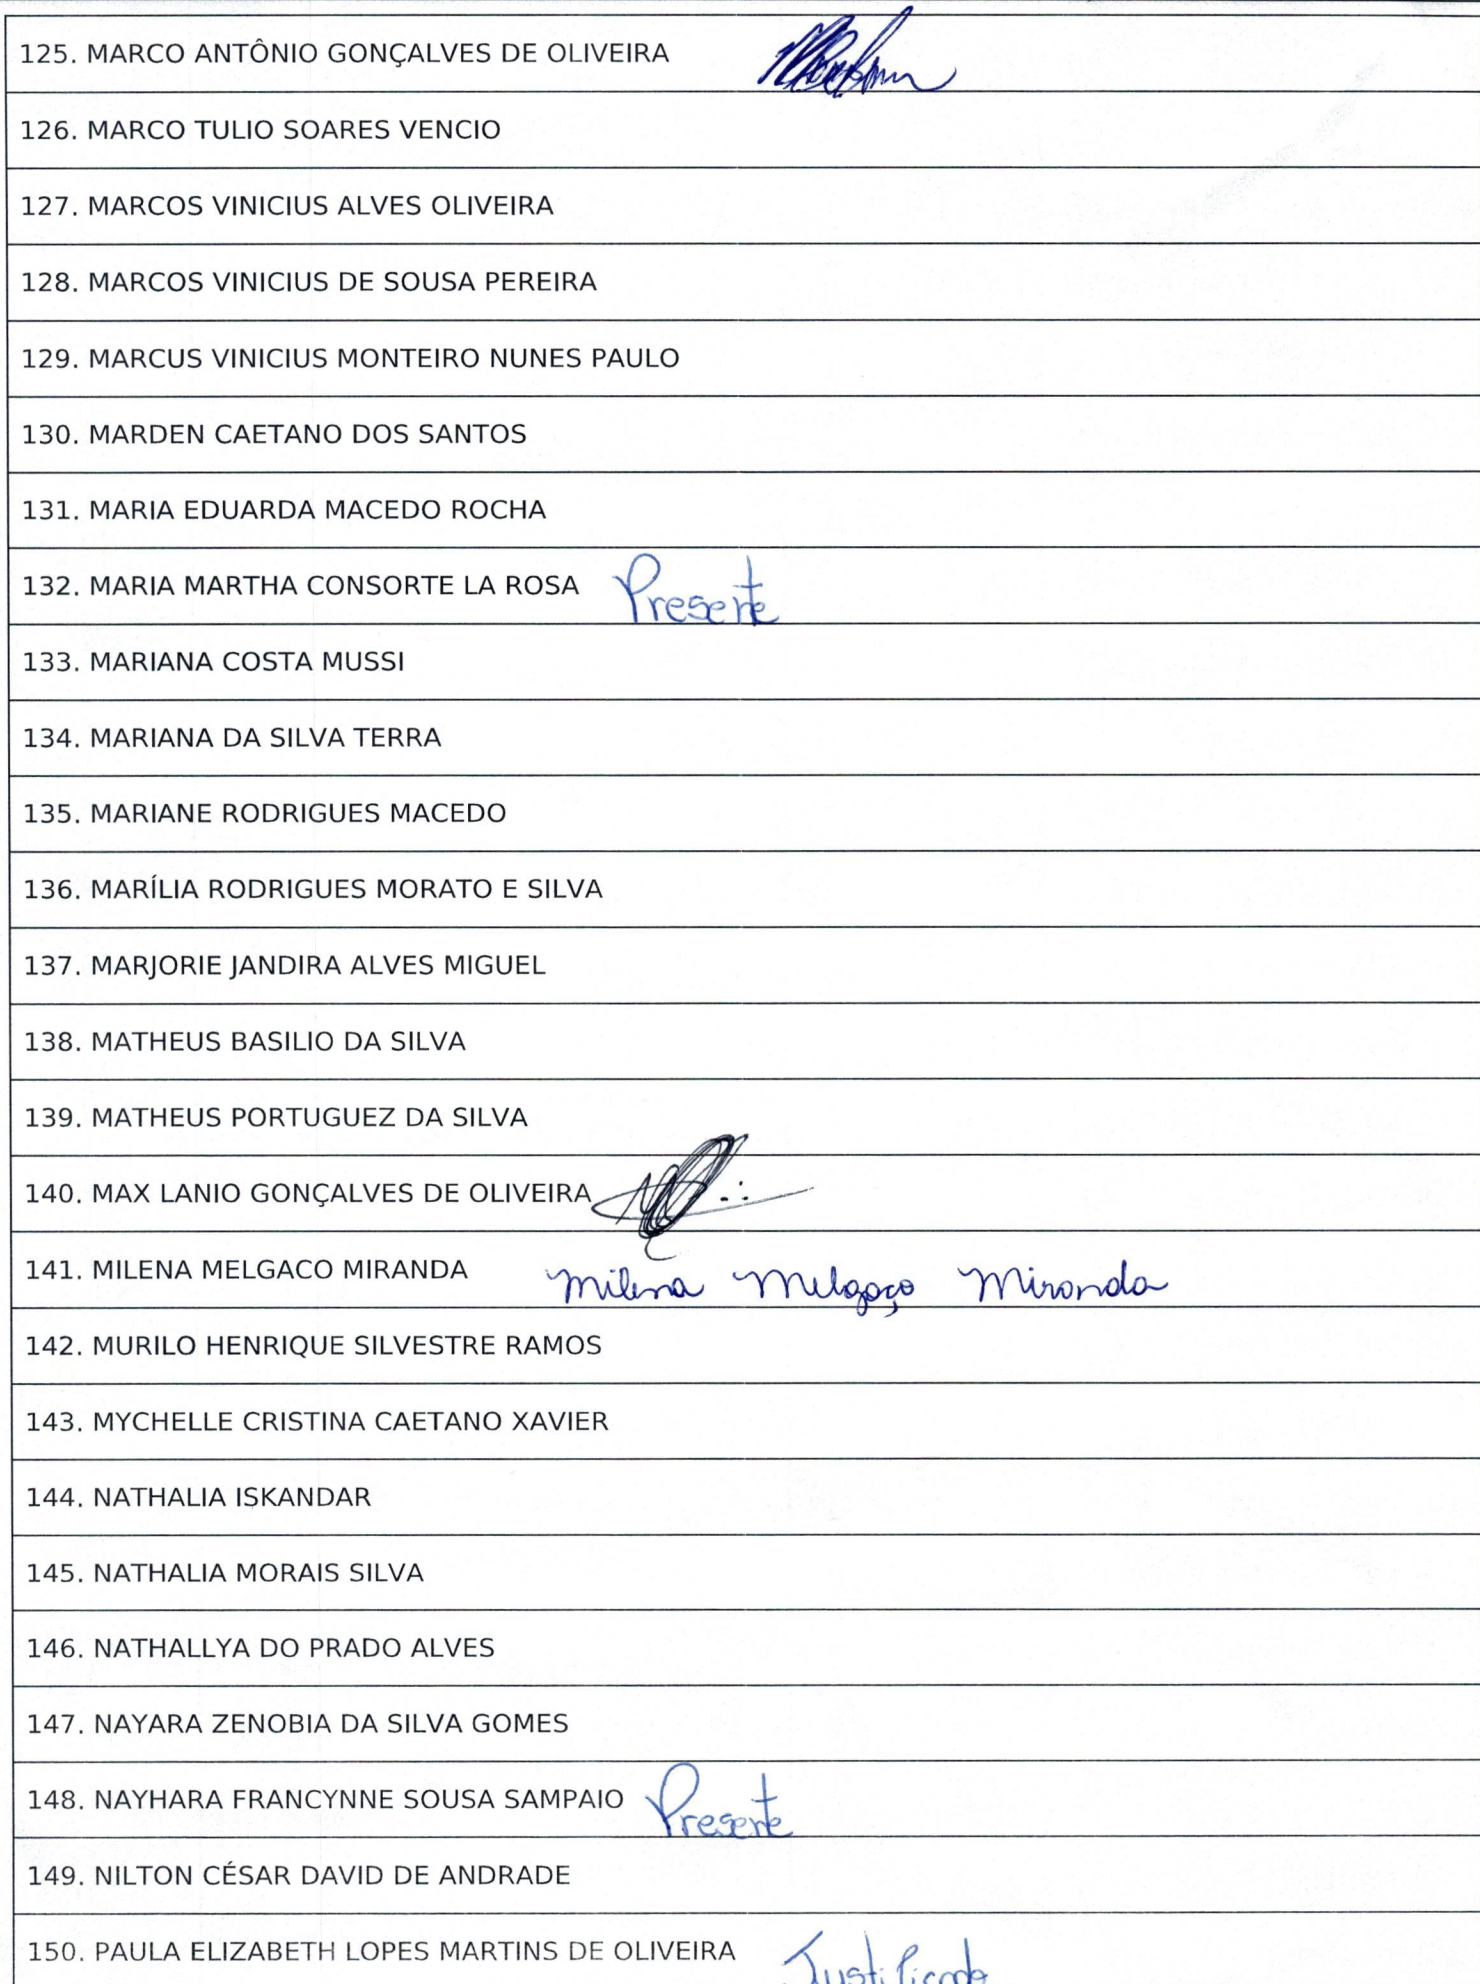 125. MARCO ANTÔNIO GONÇALVES DE OLIVEIRA
126. MARCO TULIO SOARES VENCIO
127. MARCOS VINICIUS ALVES OLIVEIRA
128. MARCOS VINICIUS DE SOUSA PEREIRA
129. MARCUS VINICIUS MONTEIRO NUNES PAULO
130. MARDEN CAETANO DOS SANTOS
131. MARIA EDUARDA MACEDO ROCHA
132. MARIA MARTHA CONSORTE LA ROSA Presente
133. MARIANA COSTA MUSSI
134. MARIANA DA SILVA TERRA
135. MARIANE RODRIGUES MACEDO
136. MARÍLIA RODRIGUES MORATO E SILVA
137. MARJORIE JANDIRA ALVES MIGUEL
138. MATHEUS BASILIO DA SILVA
139. MATHEUS PORTUGUEZ DA SILVA
140. MAX LANIO GONÇALVES DE OLIVEIRA
141. MILENA MELGACO MIRANDA Milena Melgaço Miranda
142. MURILO HENRIQUE SILVESTRE RAMOS
143. MYCHELLE CRISTINA CAETANO XAVIER
144. NATHALIA ISKANDAR
145. NATHALIA MORAIS SILVA
146. NATHALLYA DO PRADO ALVES
147. NAYARA ZENOBIA DA SILVA GOMES
148. NAYHARA FRANCYNNE SOUSA SAMPAIO Presente
149. NILTON CÉSAR DAVID DE ANDRADE
150. PAULA ELIZABETH LOPES MARTINS DE OLIVEIRA Justificada